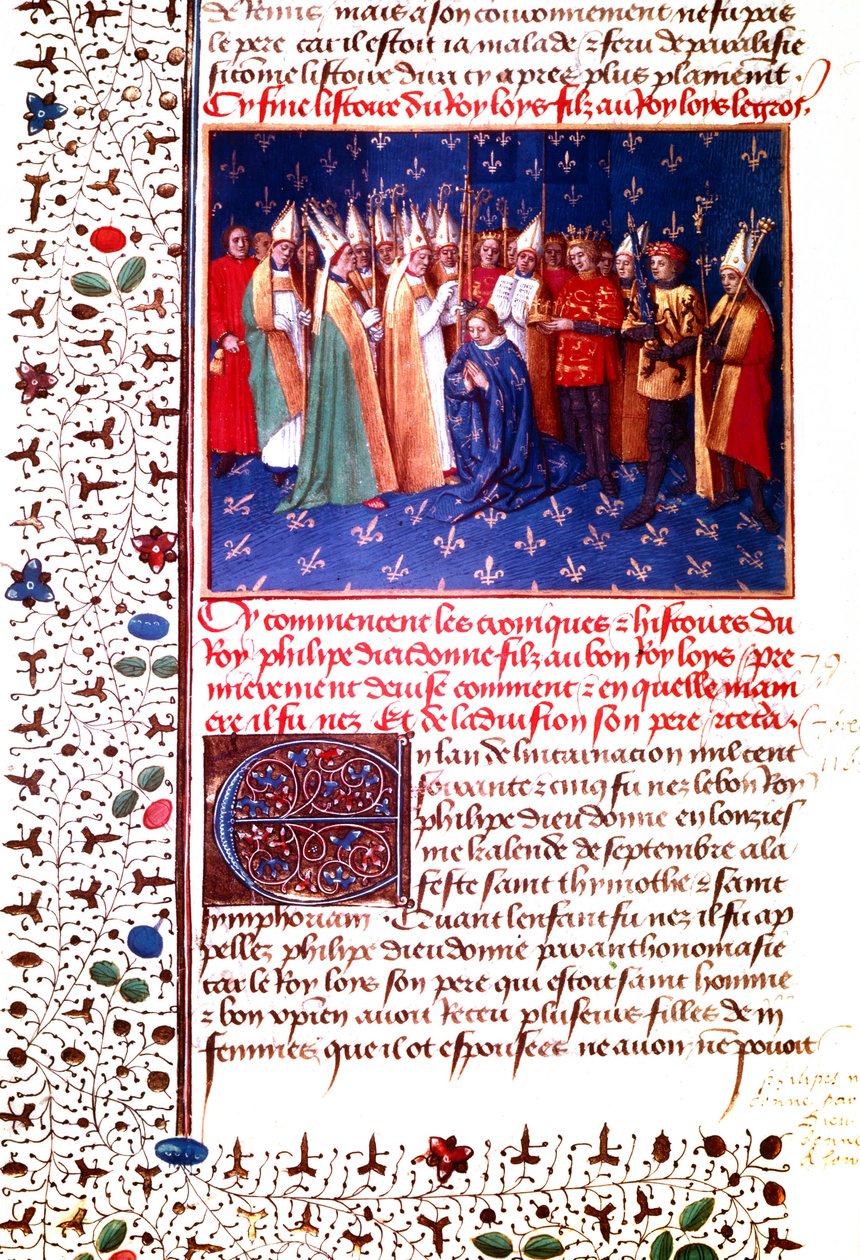 de Reins / mais a son couronnement ne fu pas
le pere car il estoit ia malade / & feru de paralisie
si come listoire dira cy apres plus plainemt .
Cy fine listoire du Roy loys filz au Roy loys le gros .
Cy commencent les croniques & histoires du
Roy philipe dieudonne filz au bon Roy loys / pre
mierement devise comment & en quelle mani
ere il fu nez Et de la division son pere
En lan de lincarnacion mil cent
soixante & cinq fu nez le bon Roy
philipe dieudonne en lonzies
me kalende de septembre a la
feste saint thymothe & saint
simphorian . Quant lenfant fu nez il fu ap
pellez philipe dieudonne par anthonomasie
car le Roy loys son pere qui estoit saint homme
& bon xpien avoit Receu plusieurs filles de iij
femmes que il ot espousees ne avoir ne povoit
philipes
donne par
Dieu
donne